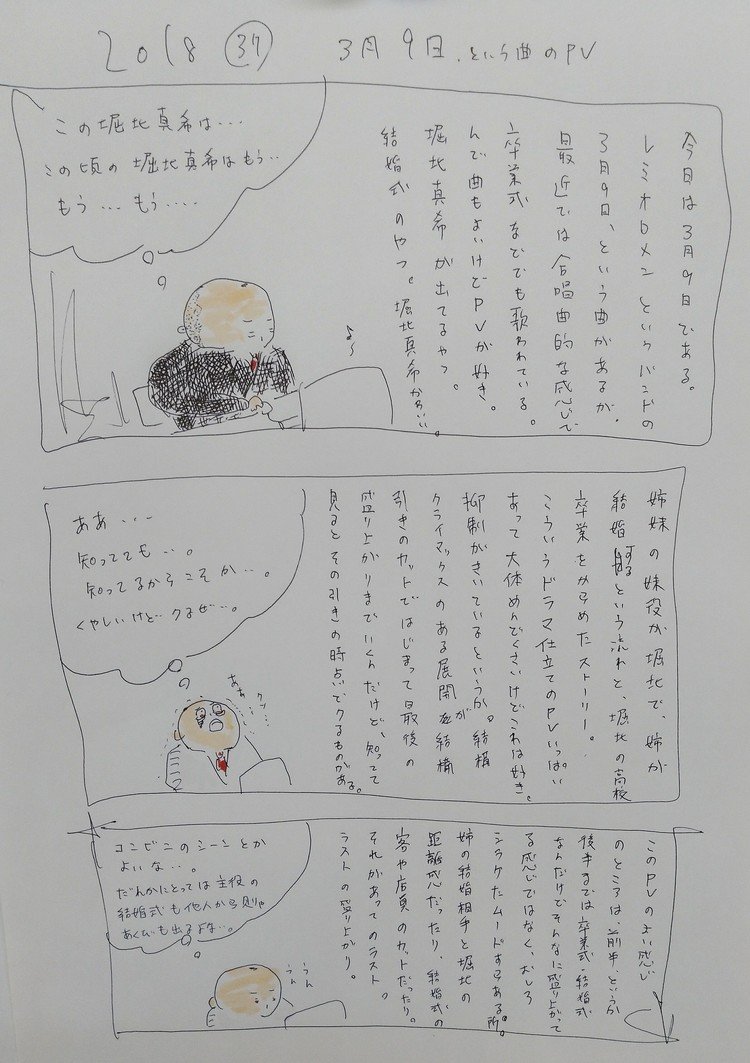 2018 ㊲ 3月9日、という曲のPV
今日は3月9日である。
レミオロメンというバンドの
3月9日、という曲があるが、
最近では合唱曲的な感じで
卒業式などでも歌われている。
んで曲もよいけどPVが好き。
堀北真希が出てるやつ。
結婚式のやつ。堀北真希かわいい。
この堀北真希は...
この頃の堀北真希はもう..
もう...もう....
♪〜
姉妹の妹役が堀北で、姉が
結婚するという流れと、堀北の高校
卒業をからめたストーリー。
こういうドラマ仕立てのPVいっぱい
あって大体めんどくさいけどこれは好き。
抑制がきいているというか。結構
クライマックスのある展開が結構
引きのカットではじまって最後の
盛り上がりまでいくんだけど、知ってて
見るとその引きの時点でクるものがある。
ああ...
知ってても...。
知ってるからこそか...。
くやしいけど...クるぜ...。
ああ...
クッ...
このPVのよい感じ
のところは、前半、というか
後半までは卒業式・結婚式
なんだけどそんなに盛り上がって
る感じではなく、むしろ
シラケたムードすらある所。
姉の結婚相手と堀北の
距離感だったり、結婚式の
客や店員のカットだったり。
それがあってのラスト。
ラストの盛り上がり。
コンビニのシーンとか
よいな...。
だれかにとっては主役の
結婚式も他人から見りゃ
あくびも出るよな...。
うん
うん